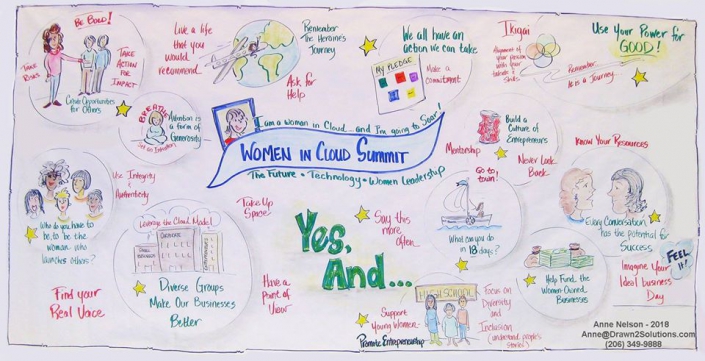 Be BOLD!
TAKE RISKS
TAKE ACTION FOR IMPACT
Create Opportunities for Others
Live a life that you would recommend.
Remember The Heroine's Journey
Ask for Help
We all have an action we can take
MY PLEDGE
Make a commitment
Ikigai
Alignment of your passion with your talents & skills
Use Your Power for GOOD!
Remember... It is a Journey
BREATHE
Attention is a form of Generosity
Set an Intention
I am a woman in Cloud... and I'm going to Soar!
WOMEN IN CLOUD SUMMIT
The Future • Technology • Women Leadership
Build a Culture of Entrepreneurs
Mentorship
Never Look Back
Know Your Resources
Use Integrity & Authenticity
Who do you have to be, to be the woman who launches others?
Find your Real Voice
Leverage the Cloud Model
Diverse Groups Make Our Businesses Better
Take Up Space
Have a Point of View
Yes, And...
Say this more often...
Go to town!
What can you do in 18 days?
Every Conversation has the Potential for Success
Help Fund the Women-Owned Businesses
Imagine Your Ideal business Day
FEEL it!
HIGH SCHOOL
Support Young Women
Promote Entrepreneurship
Focus on Diversity and Inclusion
(understand people's stories)
Anne Nelson - 2018
Anne@Drawn2Solutions.com
(206) 349-9888